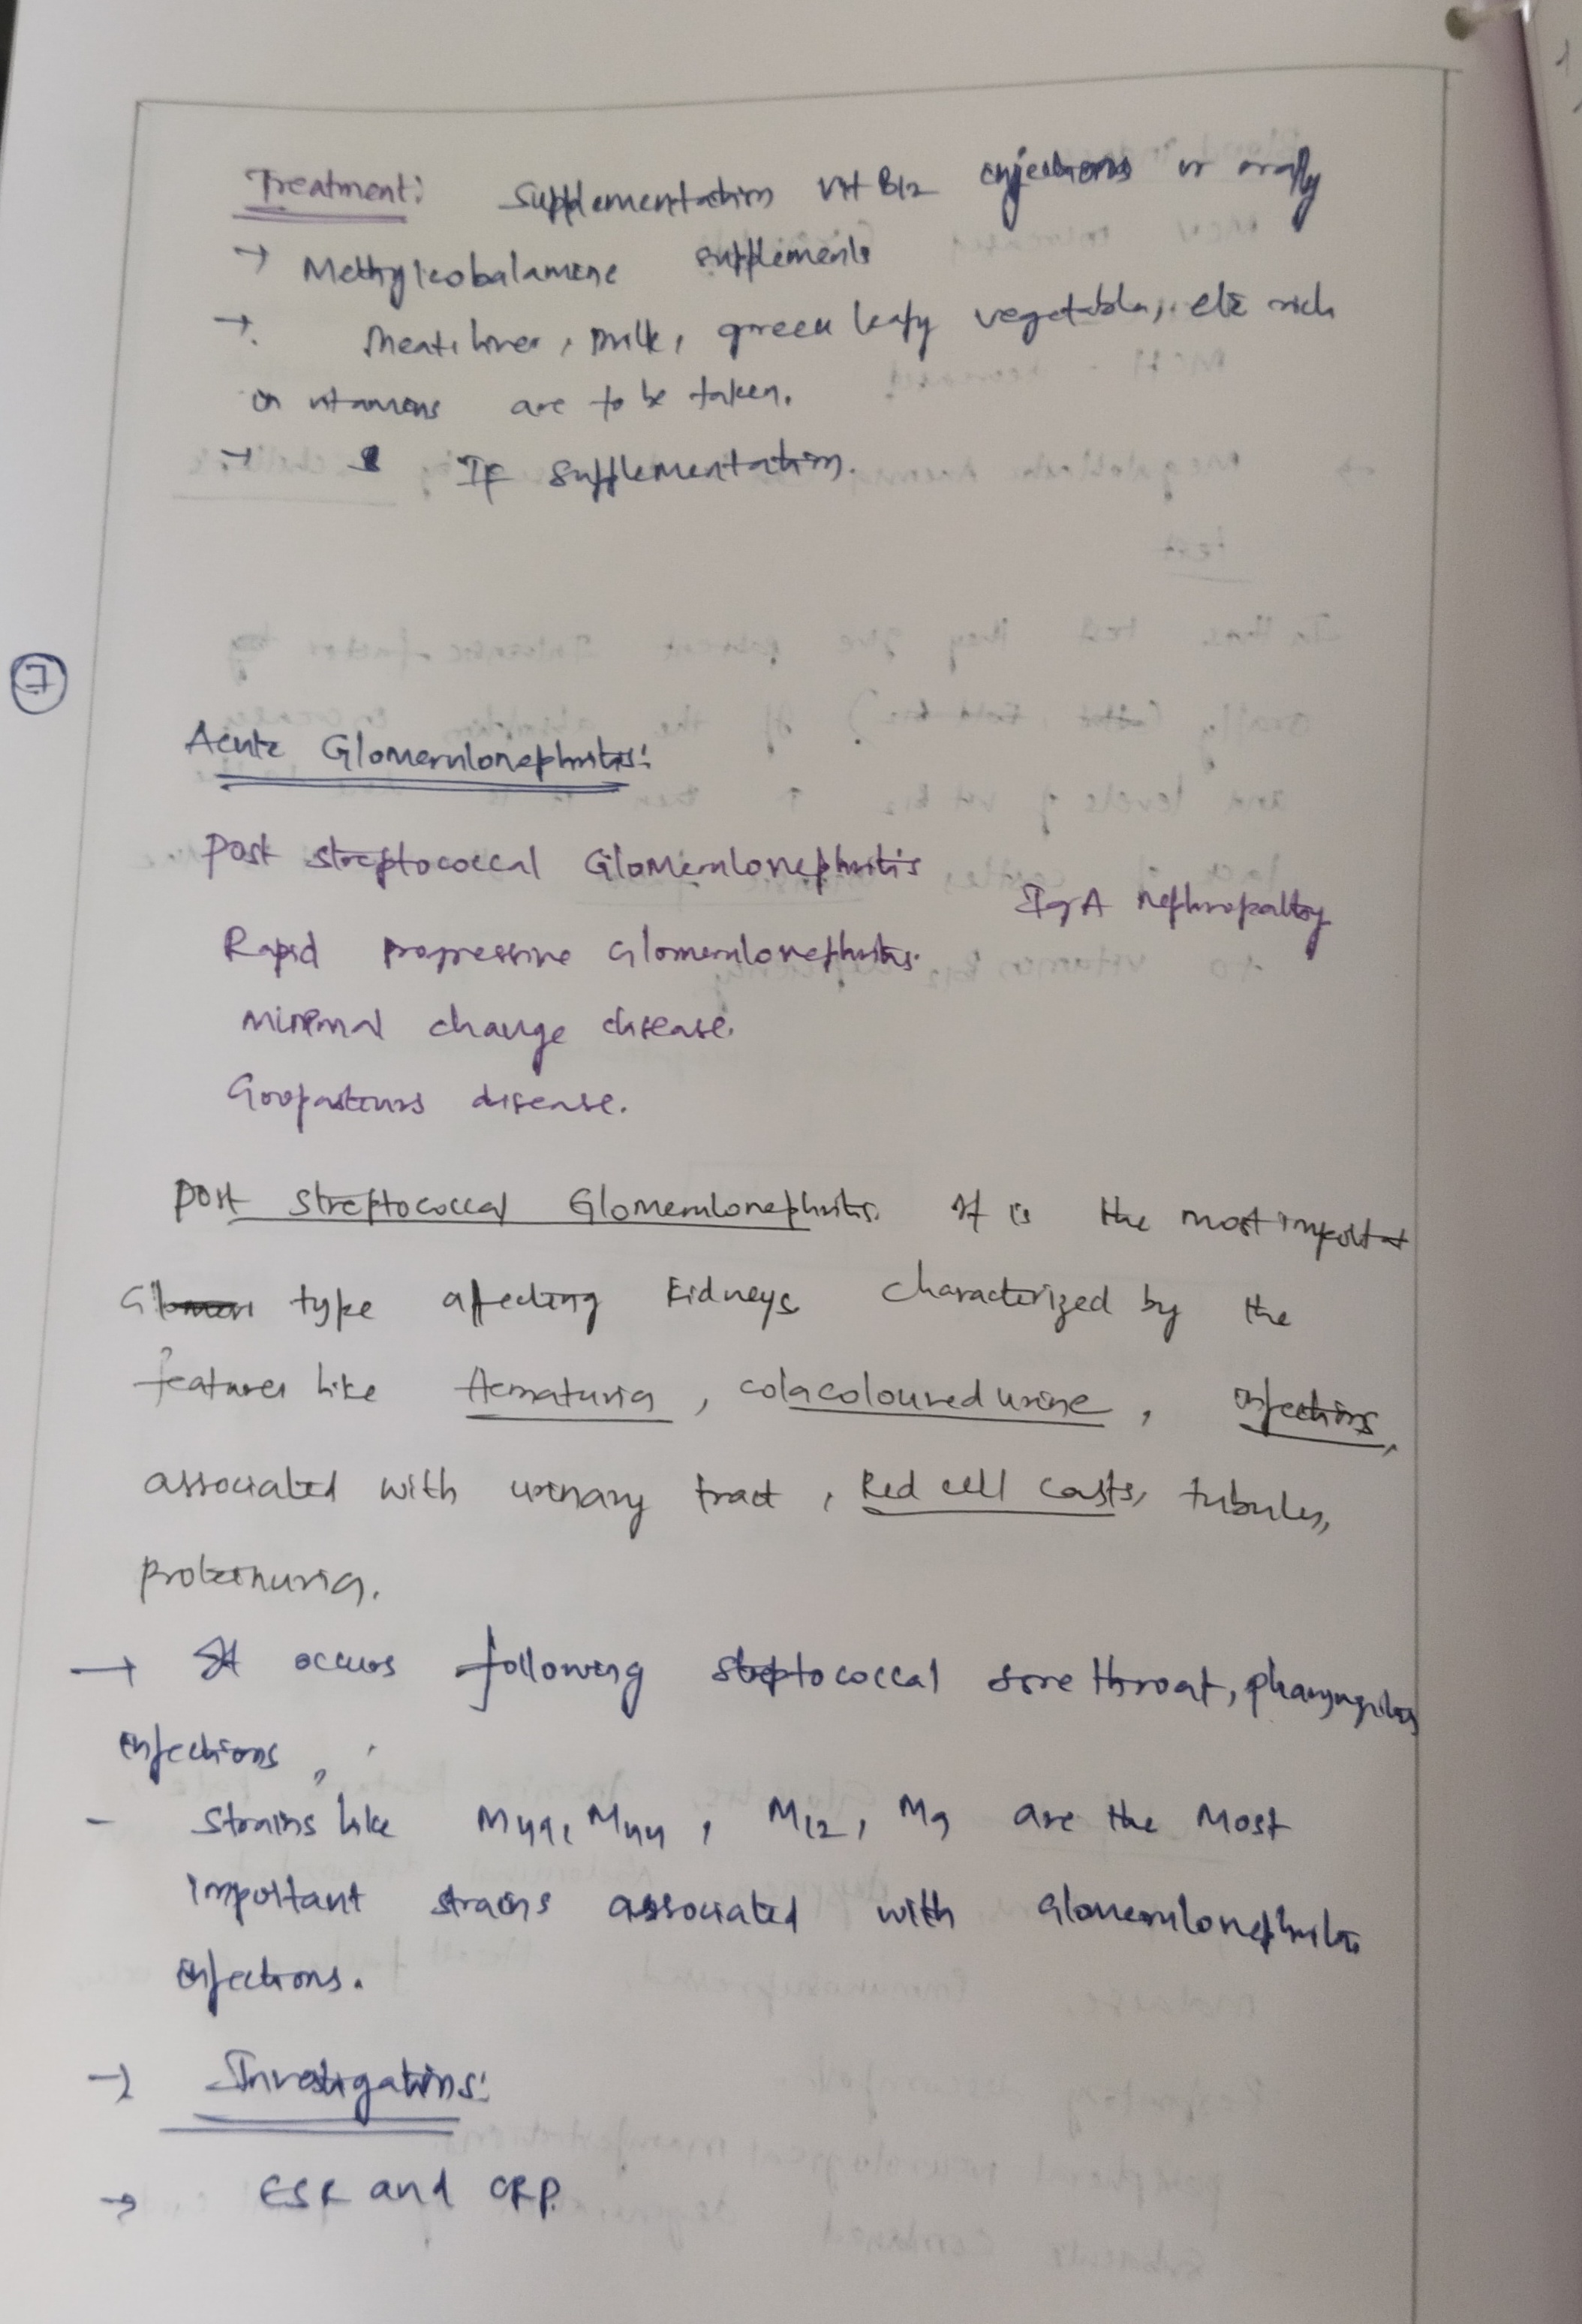 Treatment: Supplementation Vit B12 injections or orally
→ Methylcobalamine supplements
→ Meat, liver, milk, green leafy vegetables, etc rich
in vitamins are to be taken.
→ IF supplementation.
7
Acute Glomerulonephritis:
Post streptococcal Glomerulonephritis
IgA nephropathy
Rapid progressive Glomerulonephritis.
Minimal change disease.
Goodpastures disease.
Post Streptococcal Glomerulonephritis. It is the most important
type affecting kidneys characterized by the
features like Hematuria, cola coloured urine, infections,
associated with urinary tract, Red cell casts, tubules,
proteinuria.
→ It occurs following streptococcal sore throat, pharyngitis
infections,
- Strains like M49, M44, M12, M9 are the most
important strains associated with Glomerulonephritis
infections.
→ Investigations:
→ ESR and CRP.